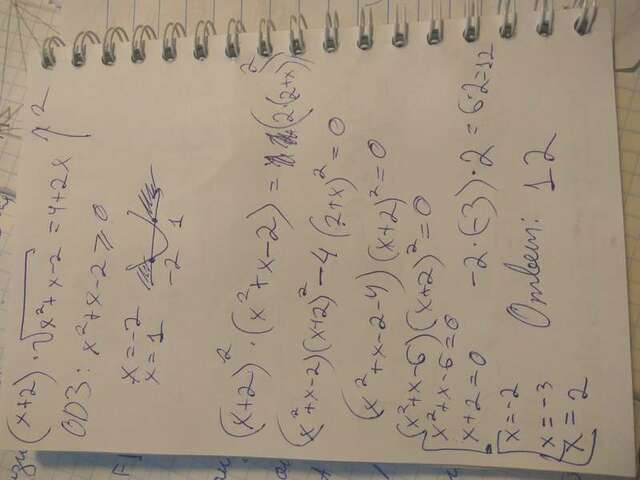 (x+2)·√x²+x-2 = 4+2x ↑2
ОДЗ: x²+x-2 ≥ 0
x=-2
x=1
-2 1
(x+2)²·(x²+x-2) = (2(2+x))²
(x²+x-2)(x+2)² - 4(2+x)² = 0
(x²+x-2-4)(x+2)² = 0
(x²+x-6)(x+2)² = 0
x²+x-6=0
x+2=0
x=-2
x=-3
x=2
-2·(-3)·2 = 6·2=12
Ответ: 12